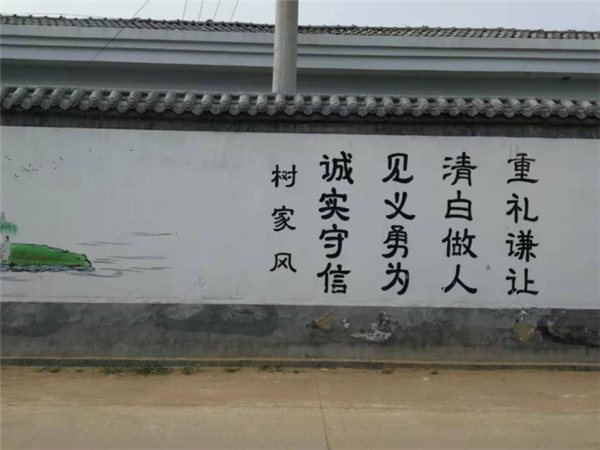 重礼谦让
清白做人
见义勇为
诚实守信
树家风